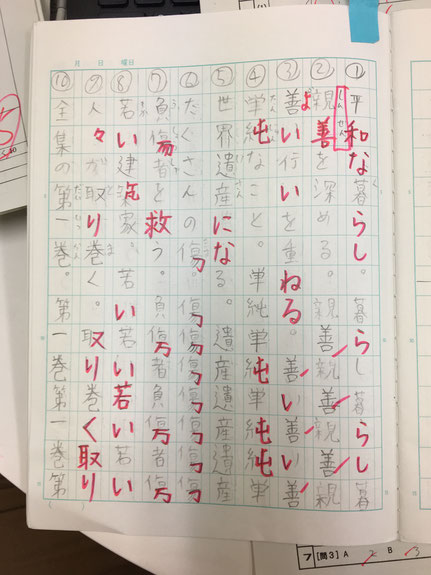 月 日 曜日
① 平和な暮らし。暮らし暮らし暮
② 親善を深める。親善親善親善親
しんぜん
③ 善い行いを重ねる。善い善い善
よ
④ 単純なこと。単純単純単純単
⑤ 世界遺産になる。遺産遺産遺産
⑥ たくさんの傷
⑦ 負傷者を救う。負傷者負傷者
⑧ 若い建築家。若い若い若い若い
⑨ 人々が取り巻く。取り巻く取り
⑩ 全集の第一巻。第一巻第一巻第
7 [問3] A B